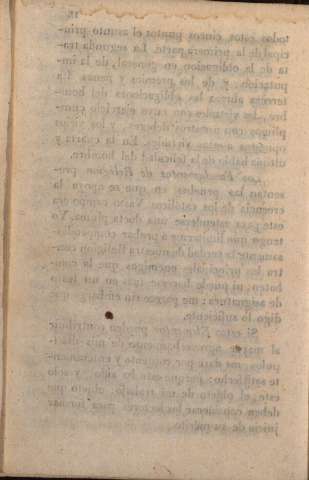 todos estos cinco puntos el asunto prin-
cipal de la primera parte. La segunda tra-
ta de la obligacion en general, de la im-
putacion, y de los premios y penas. La
tercera abraza las obligaciones del hom-
bre, las virtudes con cuyo ejercicio cum-
plimos con nuestros deberes, y los vicios
opuestos a estas virtudes. En la cuarta y
ultima hablo de la felicidad del hombre.
Los Fundamentos de Religion pre-
sentan las pruebas en que se apoya la
creencia de los católicos. Vasto campo era
este para estenderse una docta pluma. Yo
tengo que limitarme a probar compendio-
samente la verdad de nuestra Religion con-
tra los principales enemigos que la com-
baten, ni puede hacerse mas en un
de asignatura; me parece sin embargo que
digo lo suficiente.
Si estos Elementos pueden contribuir
al mayor aprovechamiento de mis discí-
pulos, me daré por contento y enteramen-
te satisfecho; porque este ha sido, y solo
este, el objeto de mi trabajo, objeto que
deben considerar los lectores para formar
juicio de su mérito.